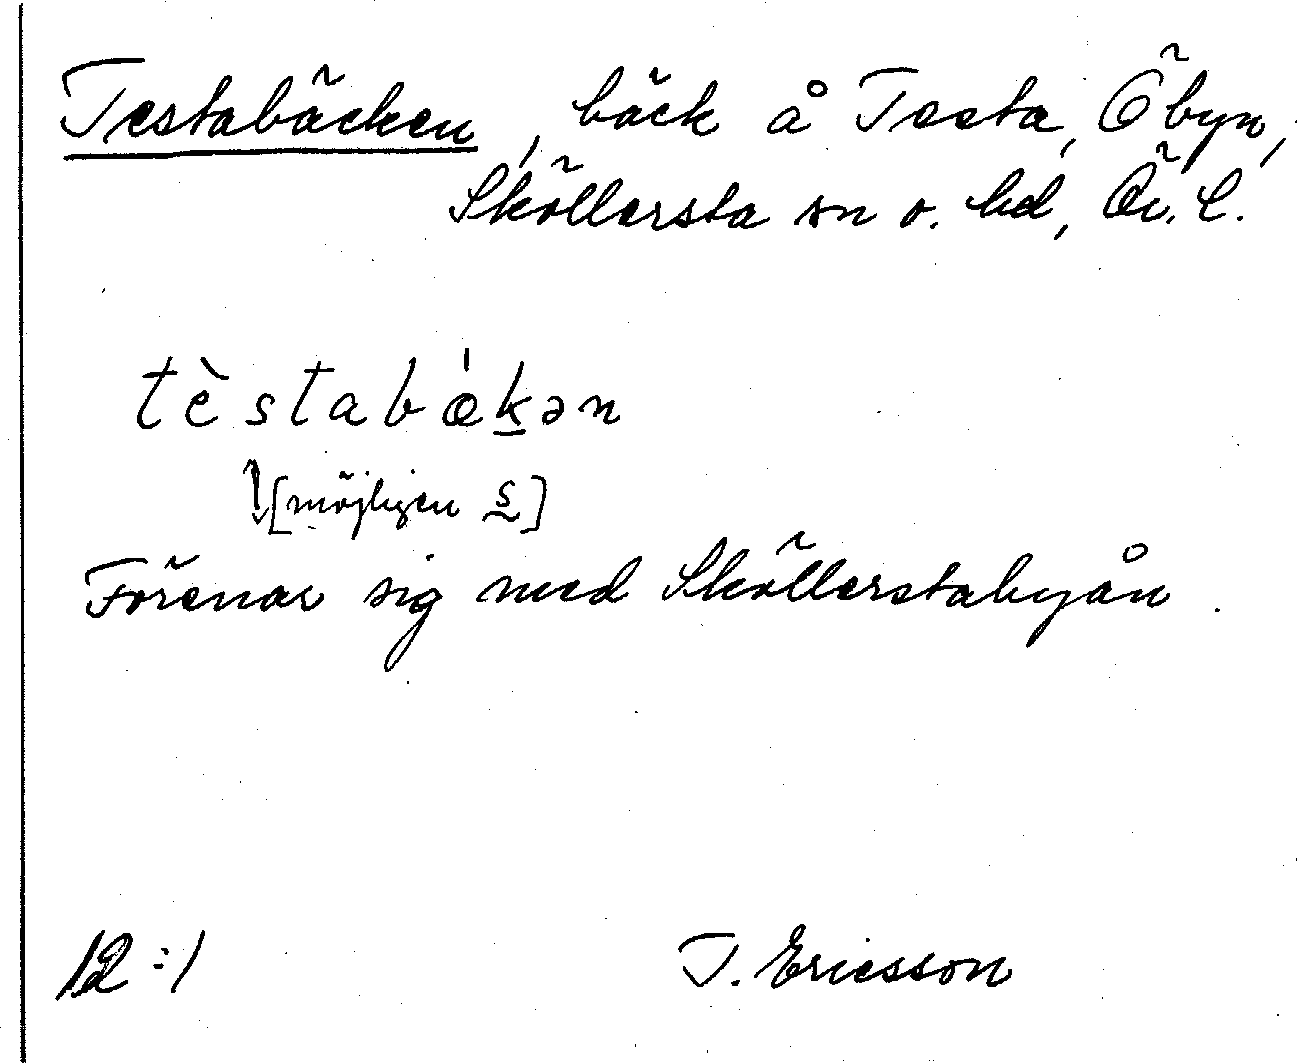 Testabäcken, bäck å Testa, Öbyn,
Sköllersta sn o. hd, Ör. l.
tèstabæ̍k̠ən
[möjligen s̰]
Förenar sig med Sköllerstabyån.
12:1 T. Ericsson